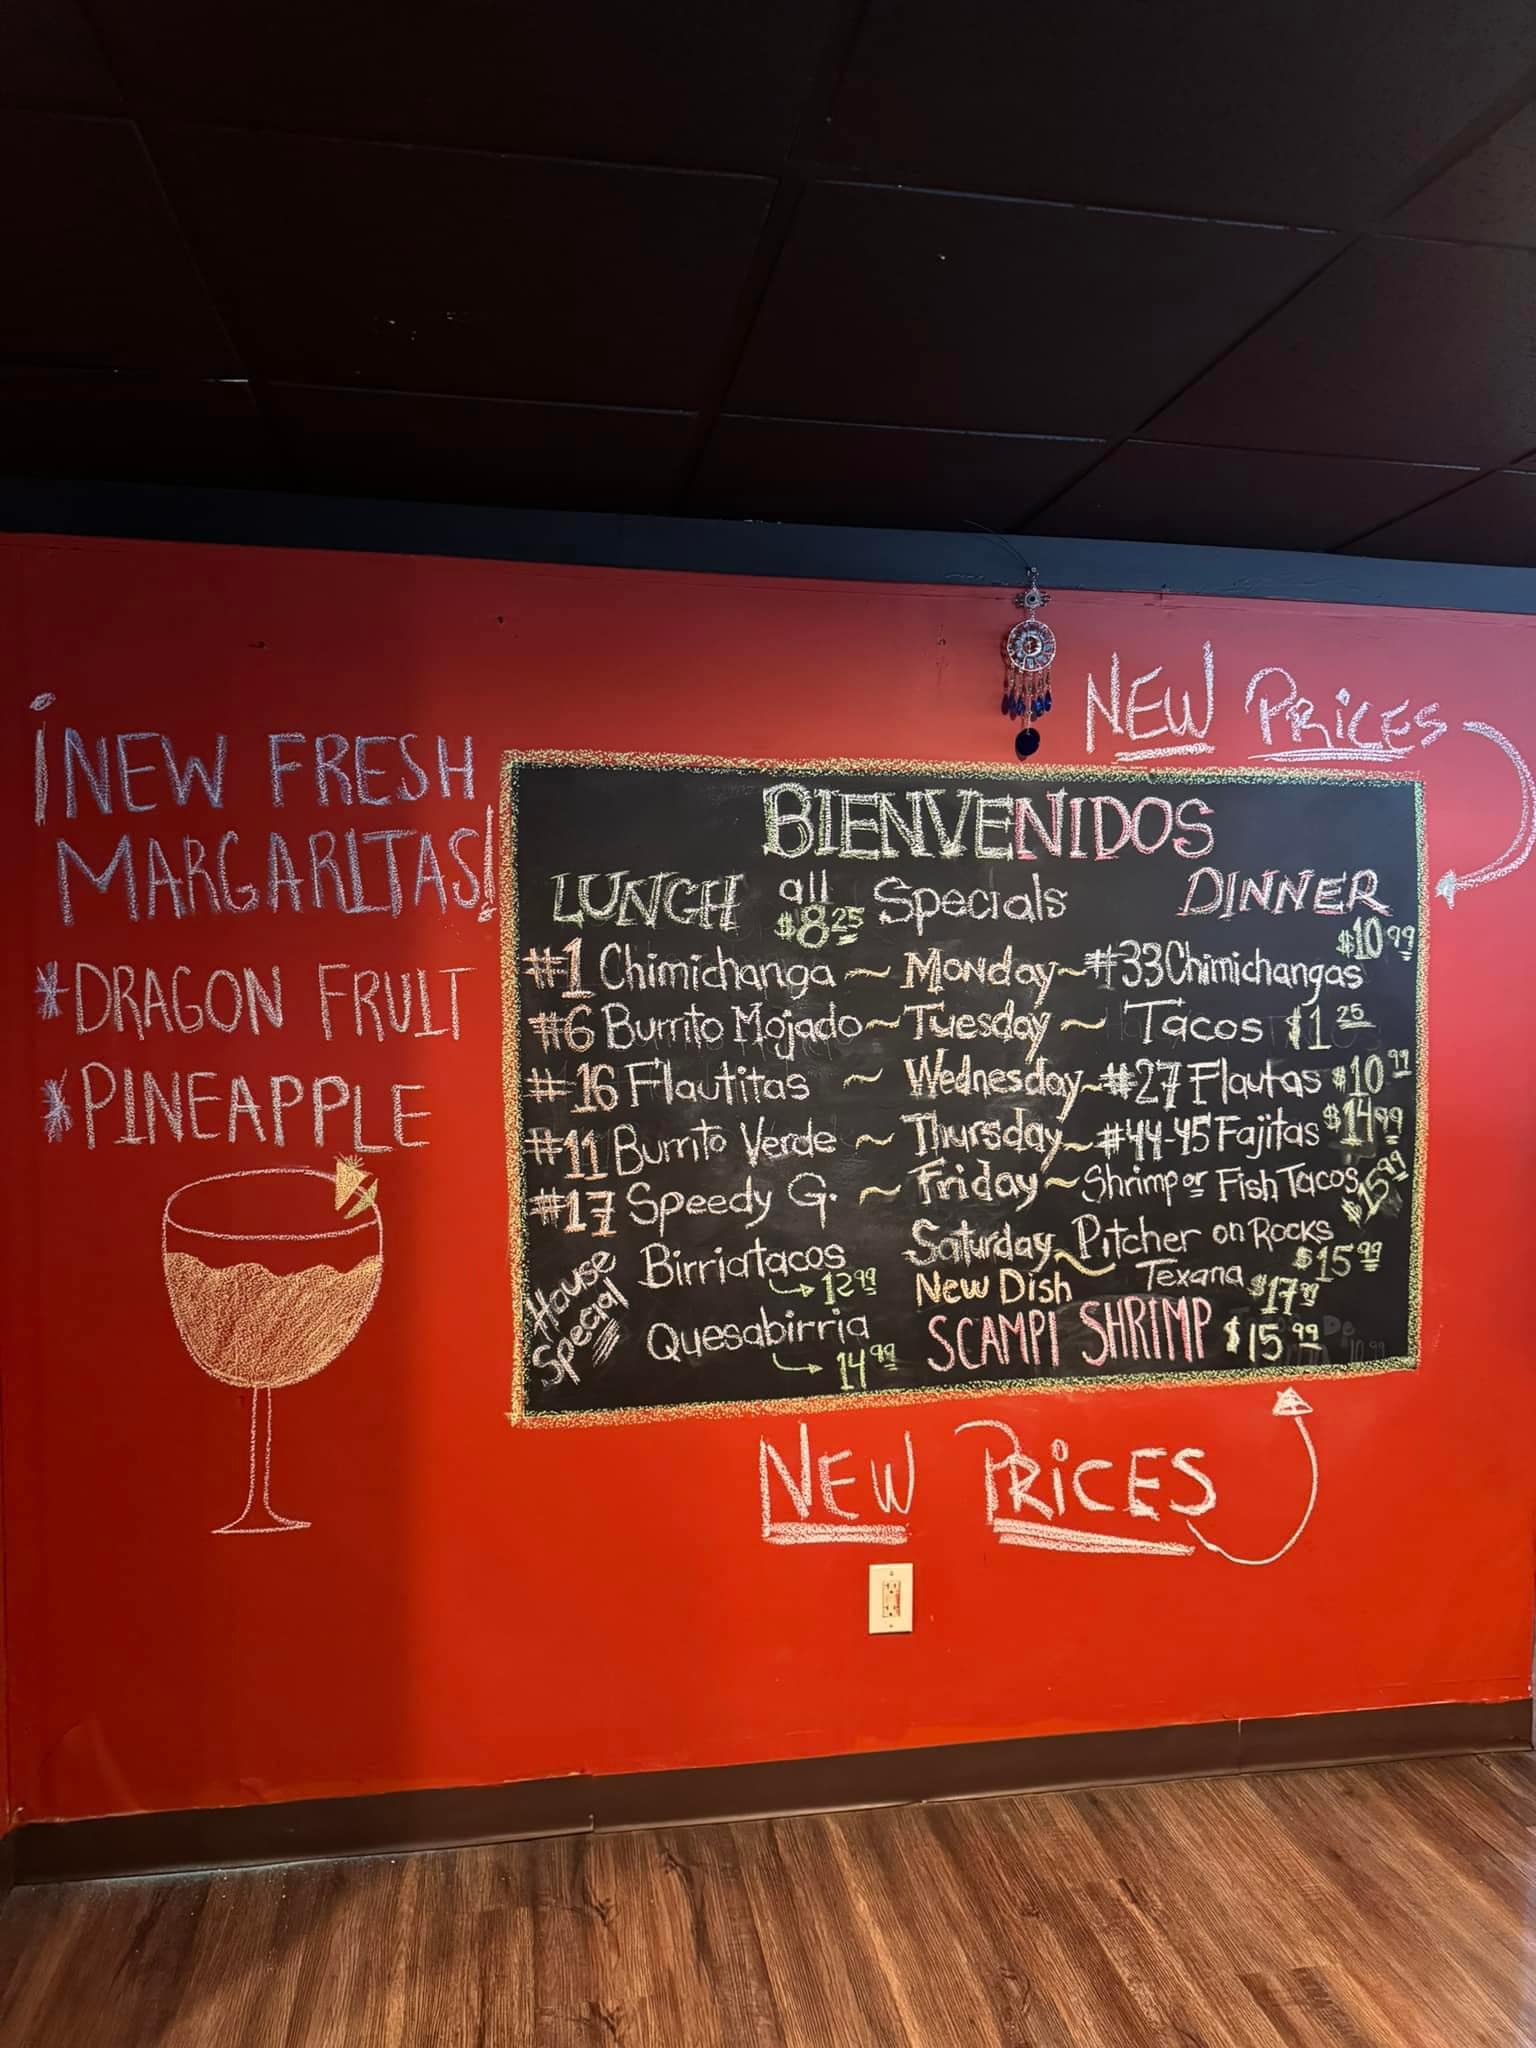 ¡NEW FRESH
MARGARITAS!
*DRAGON FRUIT
*PINEAPPLE
NEW PRICES
BIENVENIDOS
LUNCH all $8.25 Specials DINNER
#1 Chimichanga ~ Monday ~ #33 Chimichangas $10.99
#6 Burrito Mojado ~ Tuesday ~ Tacos $1.25
#16 Flautitas ~ Wednesday ~ #27 Flautas $10.99
#11 Burrito Verde ~ Thursday ~ #44-45 Fajitas $14.99
#17 Speedy G. ~ Friday ~ Shrimp or Fish Tacos $15.99
Saturday ~ Pitcher on Rocks $15.99
Texana $17.99
House Special
Birriatacos
→ 12.99
Quesabirria
→ 14.99
New Dish
SCAMPI SHRIMP $15.99
NEW PRICES